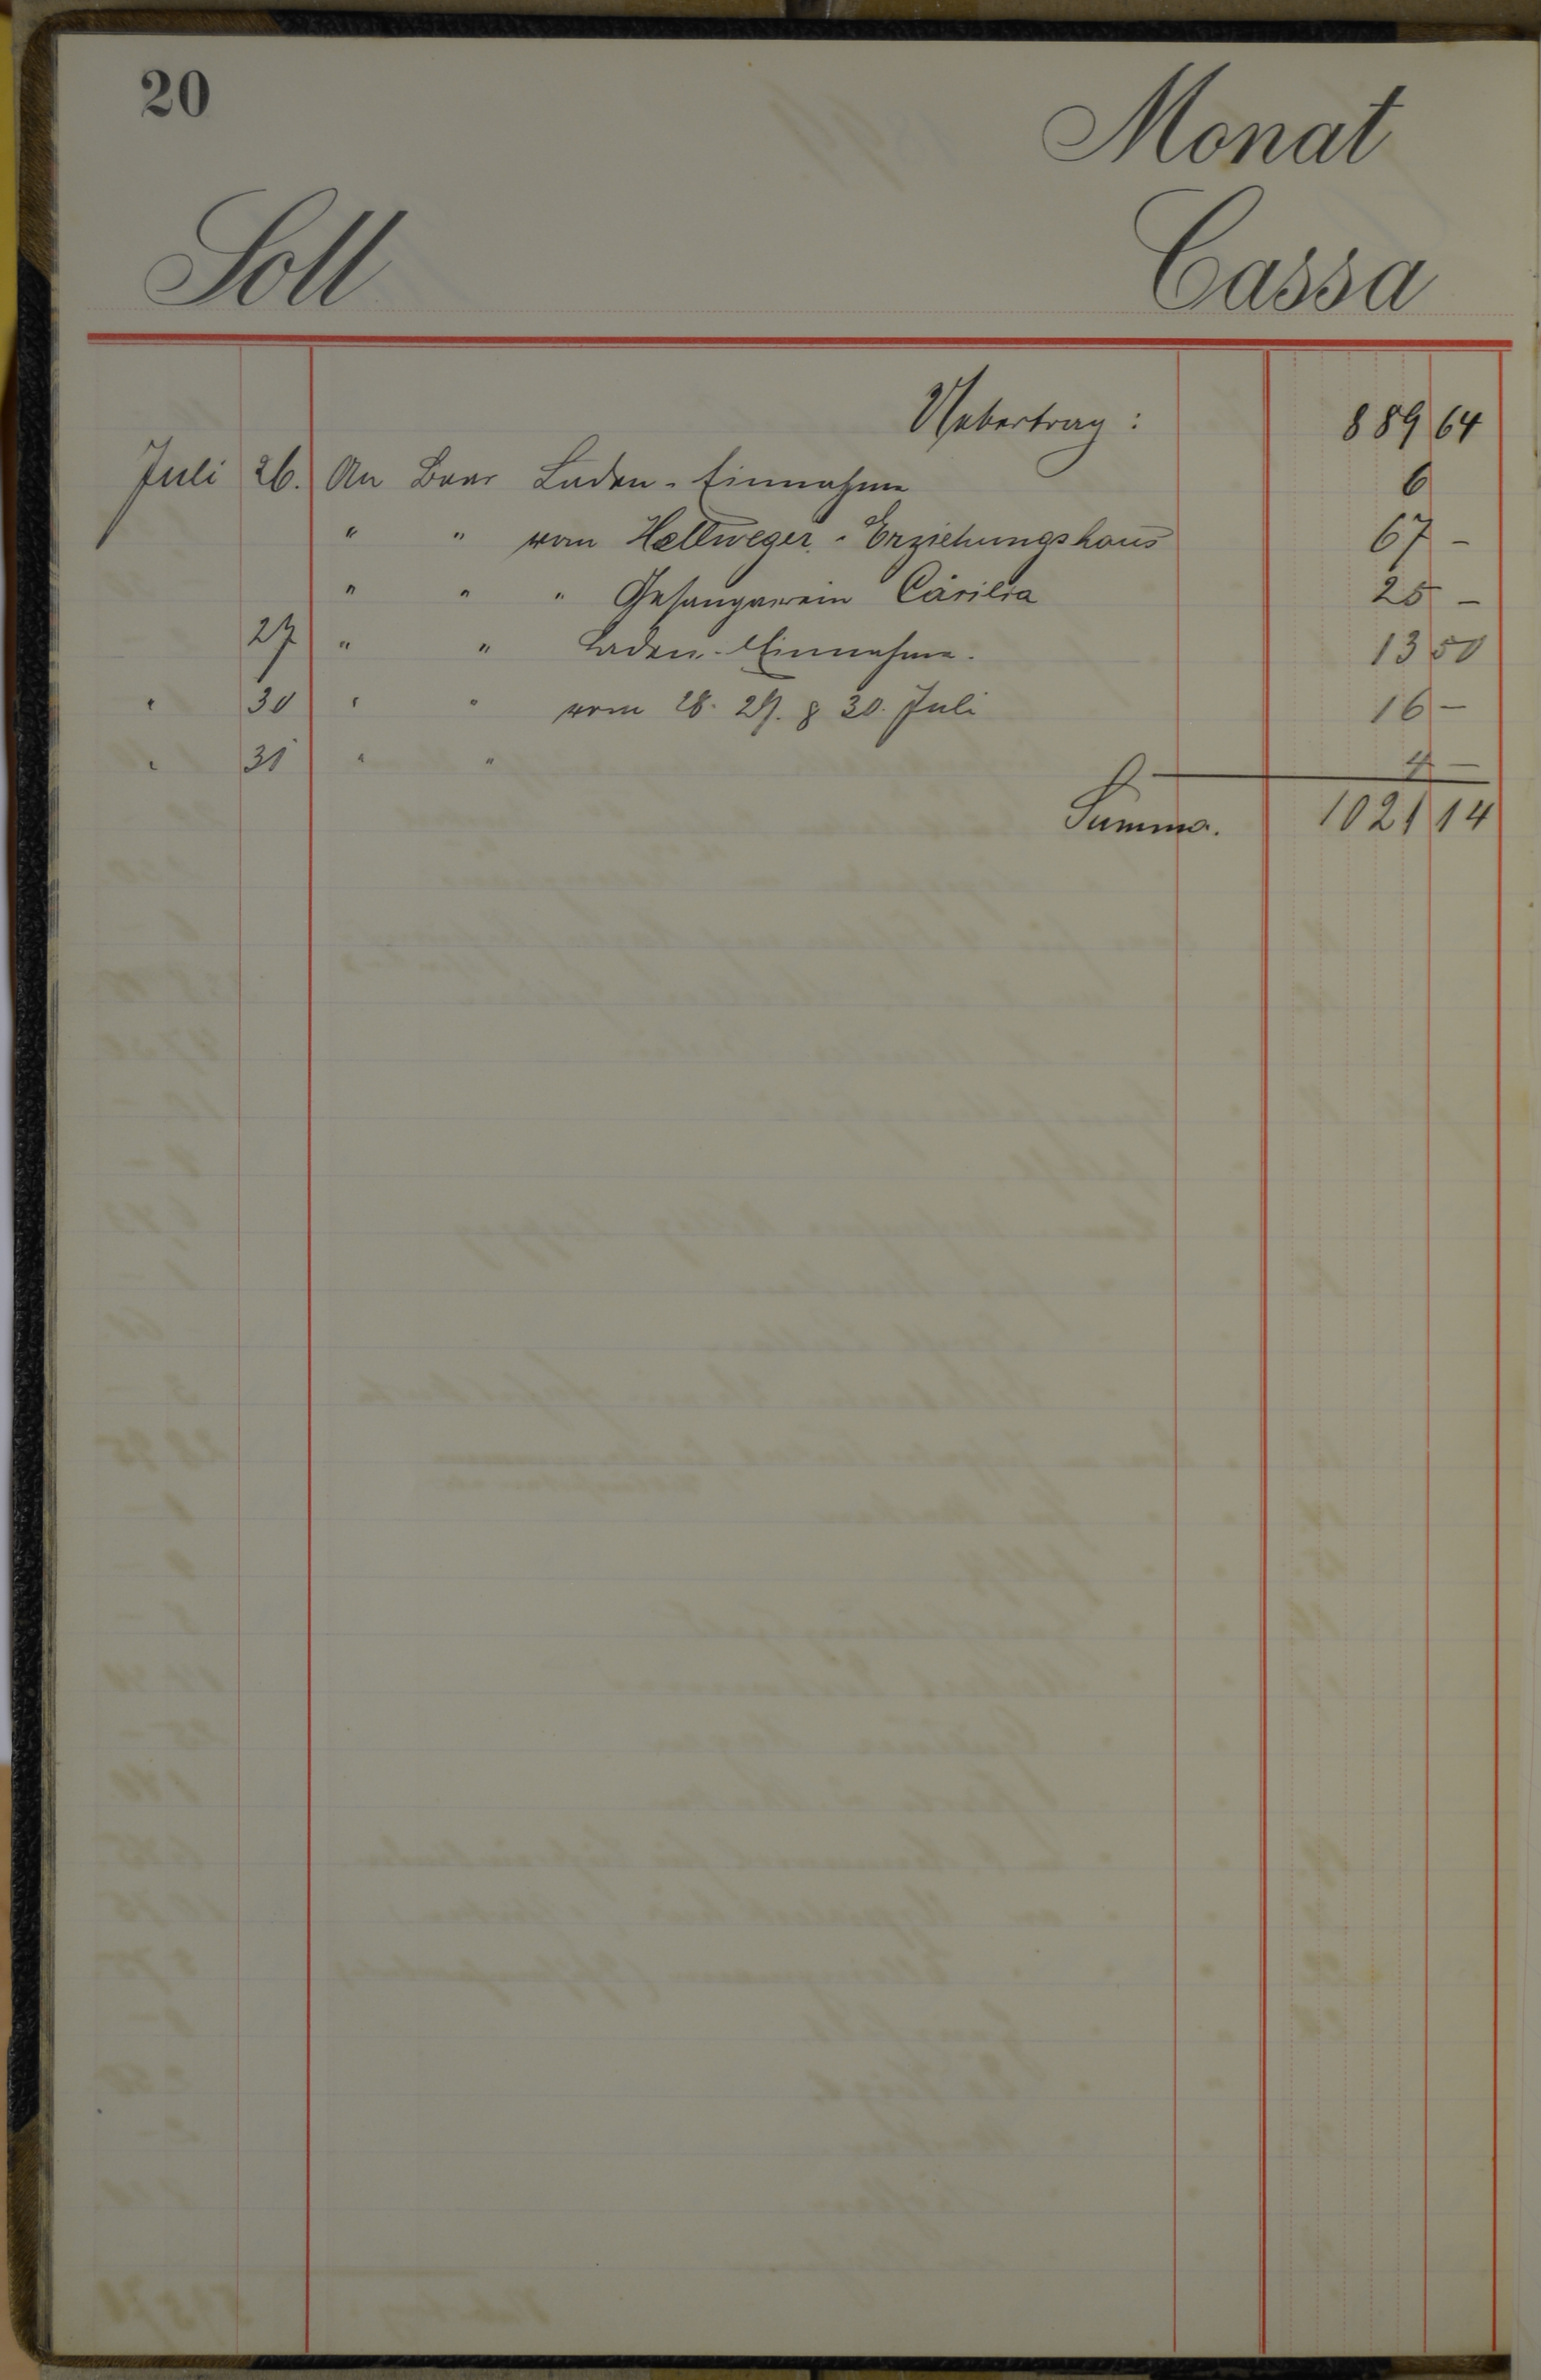 20
Monat
Soll Cassa
Uebertrag: 889 64
Juli 26. An Baar Laden-Einnahme 6
" " vom Hellweger-Erziehungshaus 67 -
" " " Gesangverein Cäcilia 25 -
27 " " Laden-Einnahme. 13 50
" 30 " " vom 28. 29. & 30. Juli 16 -
" 31 " " 4 -
Summa. 1021 14